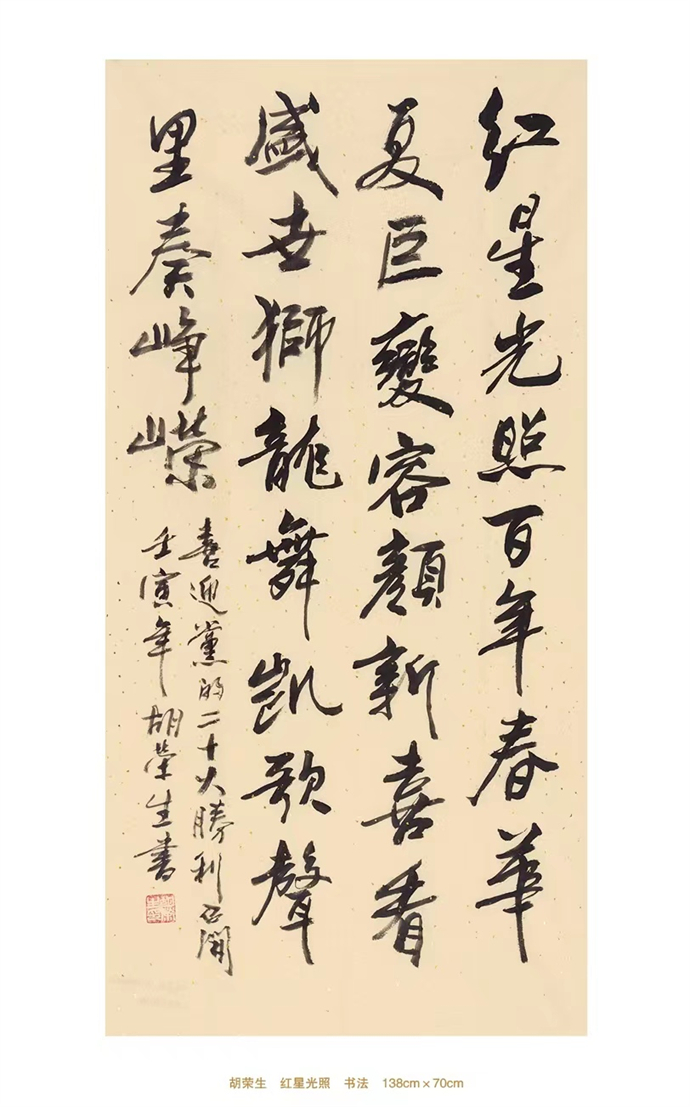 红星光照百年春華
夏巨變容顏新喜看
盛世獅龍舞凱歌聲
里奏崢嶸
喜迎黨的二十大勝利召開
壬寅年胡榮生書
胡荣生 红星光照 书法 138cm×70cm